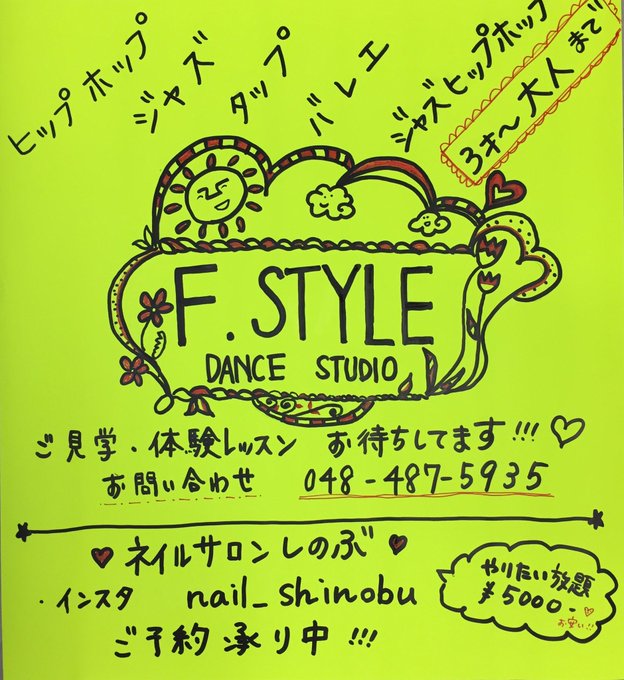 ヒップホップ
ジャズ
タップ
バレエ
ジャズヒップホップ
3才〜大人まで
F. STYLE
DANCE STUDIO
ご見学・体験レッスン お待ちしてます!!! ♡
お問い合わせ 048-487-5935
♥ ネイルサロンしのぶ ♥
・インスタ nail_shinobu
ご予約承り中!!!
やりたい放題
¥5000- ♡
お安い!!